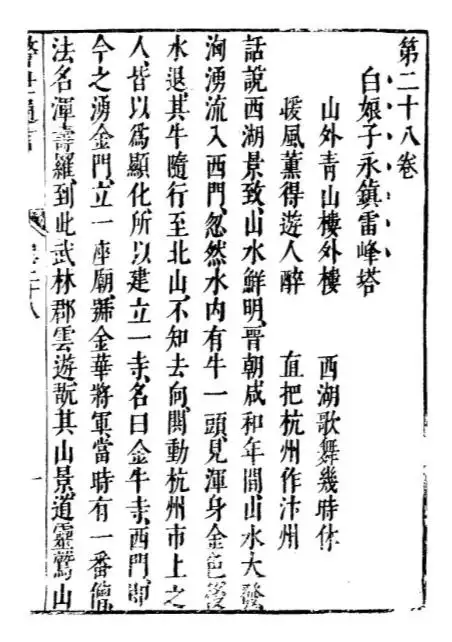 第二十八卷
白娘子永鎮雷峰塔
山外青山樓外樓　西湖歌舞幾時休
暖風薰得遊人醉　直把杭州作汴州
話說西湖景致、山水鮮明、晉朝咸和年間山水大發
洶湧流入西門、忽然水內有牛一頭、見渾身金色、後
水退、其牛隨行至北山、不知去向、鬨動杭州市上之
人、皆以爲顯化、所以建立一寺、名曰金牛寺、西門、即
今之湧金門、立一座廟、號金華將軍、當時有一番僧
法名渾壽羅、到此武林郡雲遊、翫其山景、道靈鷲山
警世通言　卷二十八　一